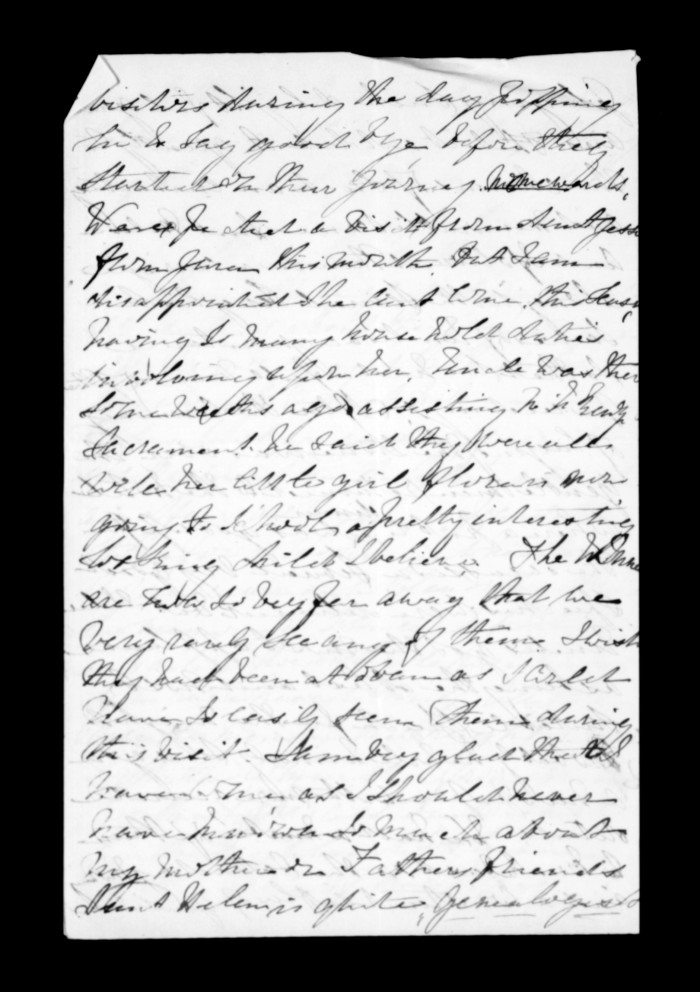 visitors during the day popping
in to say good bye before they
started on their journey homewards,
We expected a visit from Aunt Jessie
from Jura this month. But I am
disappointed she cant come, this
having so many household duties
involving upon her. Uncle was there
some weeks ago assisting with
Sacrament. he said they were all
well. her little girl Flora is now
going to School, a pretty interesting
looking child I believe The
are now so very far away that we
very rarely see any of them. I wish
they had been at as I could
have so easily seen them during
this visit. I am very glad that I
have as I should never
have known so much about
my mother or Fathers friends
Aunt Helen is quite genealogist